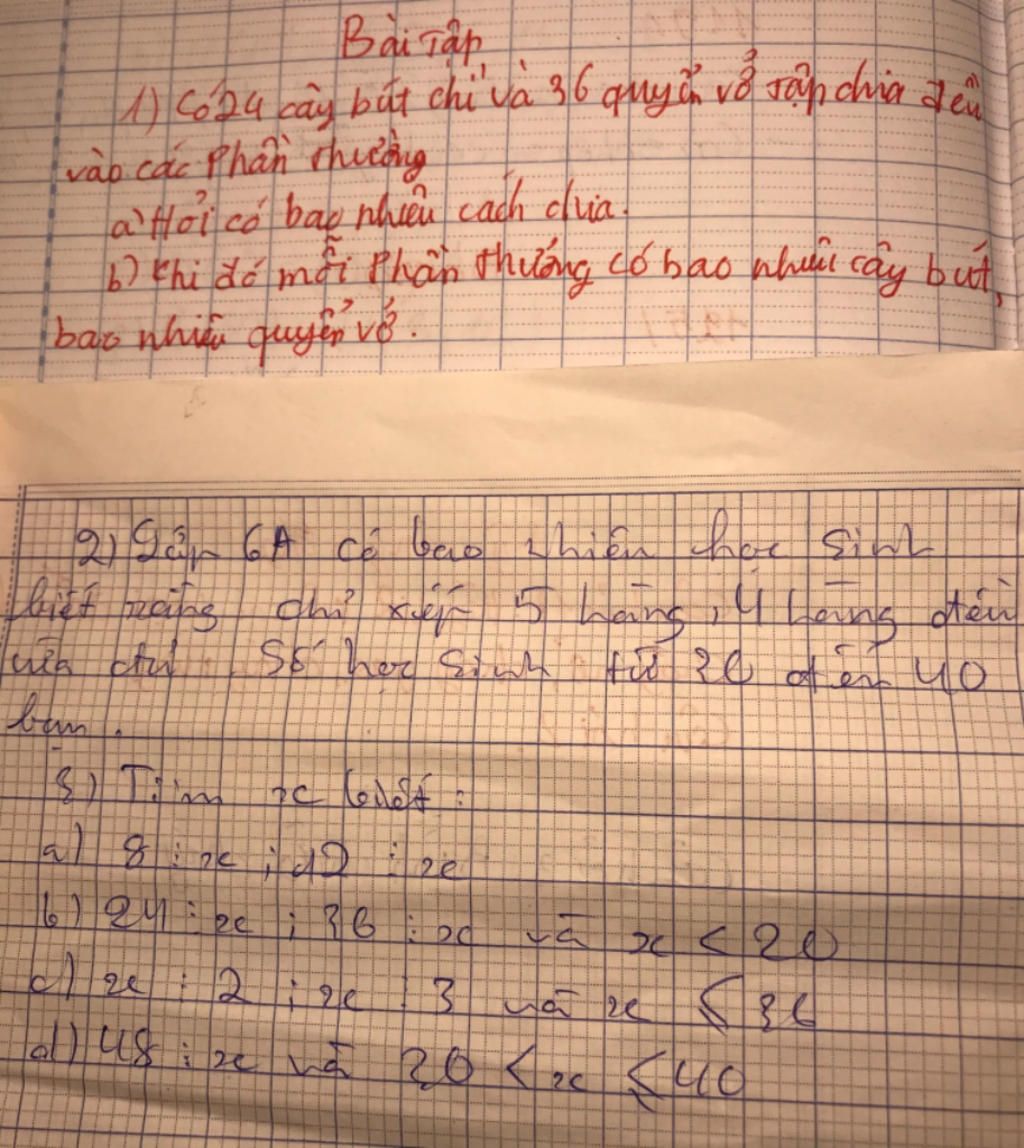 Bài Tập
1) Có 24 cây bút chì và 36 quyển vở tập chia đều
vào các phần thưởng
a) Hỏi có bao nhiêu cách chia.
b) Khi đó mỗi phần thưởng có bao nhiêu cây bút,
bao nhiêu quyển vở.
2) Lớp 6A có bao nhiêu học sinh
biết rằng chỉ xếp 5 hàng, 4 hàng đều
vừa đủ. Số học sinh từ 20 đến 40
bạn.
3) Tìm x biết:
a) 8 ⋮ x ; 12 ⋮ x
b) 24 ⋮ x ; 36 ⋮ x và x < 20
c) x ⋮ 2 ; x ⋮ 3 và x ≤ 36
d) 48 ⋮ x và 20 < x ≤ 40